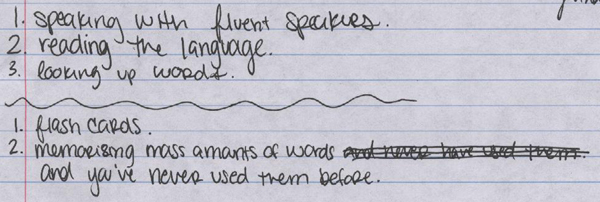 1. speaking with fluent speakers.
2. reading the language.
3. looking up words.
1. flash cards.
2. memorising mass amants of words and never have used them.
and you've never used them before.